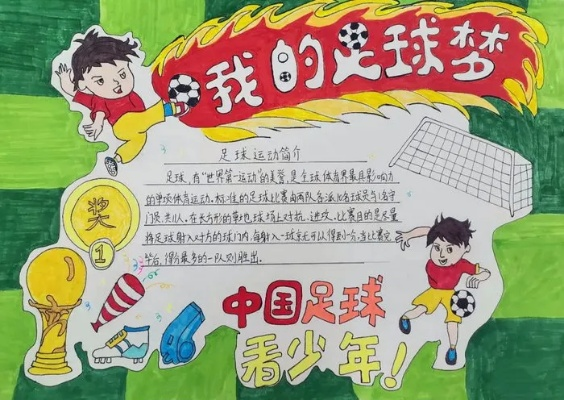 我的足球梦
足球运动简介
足球,有"世界第一运动"的美誉,是全球体育界最具影响力
的单项体育运动。标准的足球比赛由两队各派10名球员与1名守
门员,共11人,在长方形的草地球场上对抗、进攻。比赛目的是尽量
将足球射入对方的球门内,每射入一球就可以得到一分,当比赛完
毕后,得分最多的一队则胜出。
奖
1
中国足球
看少年!